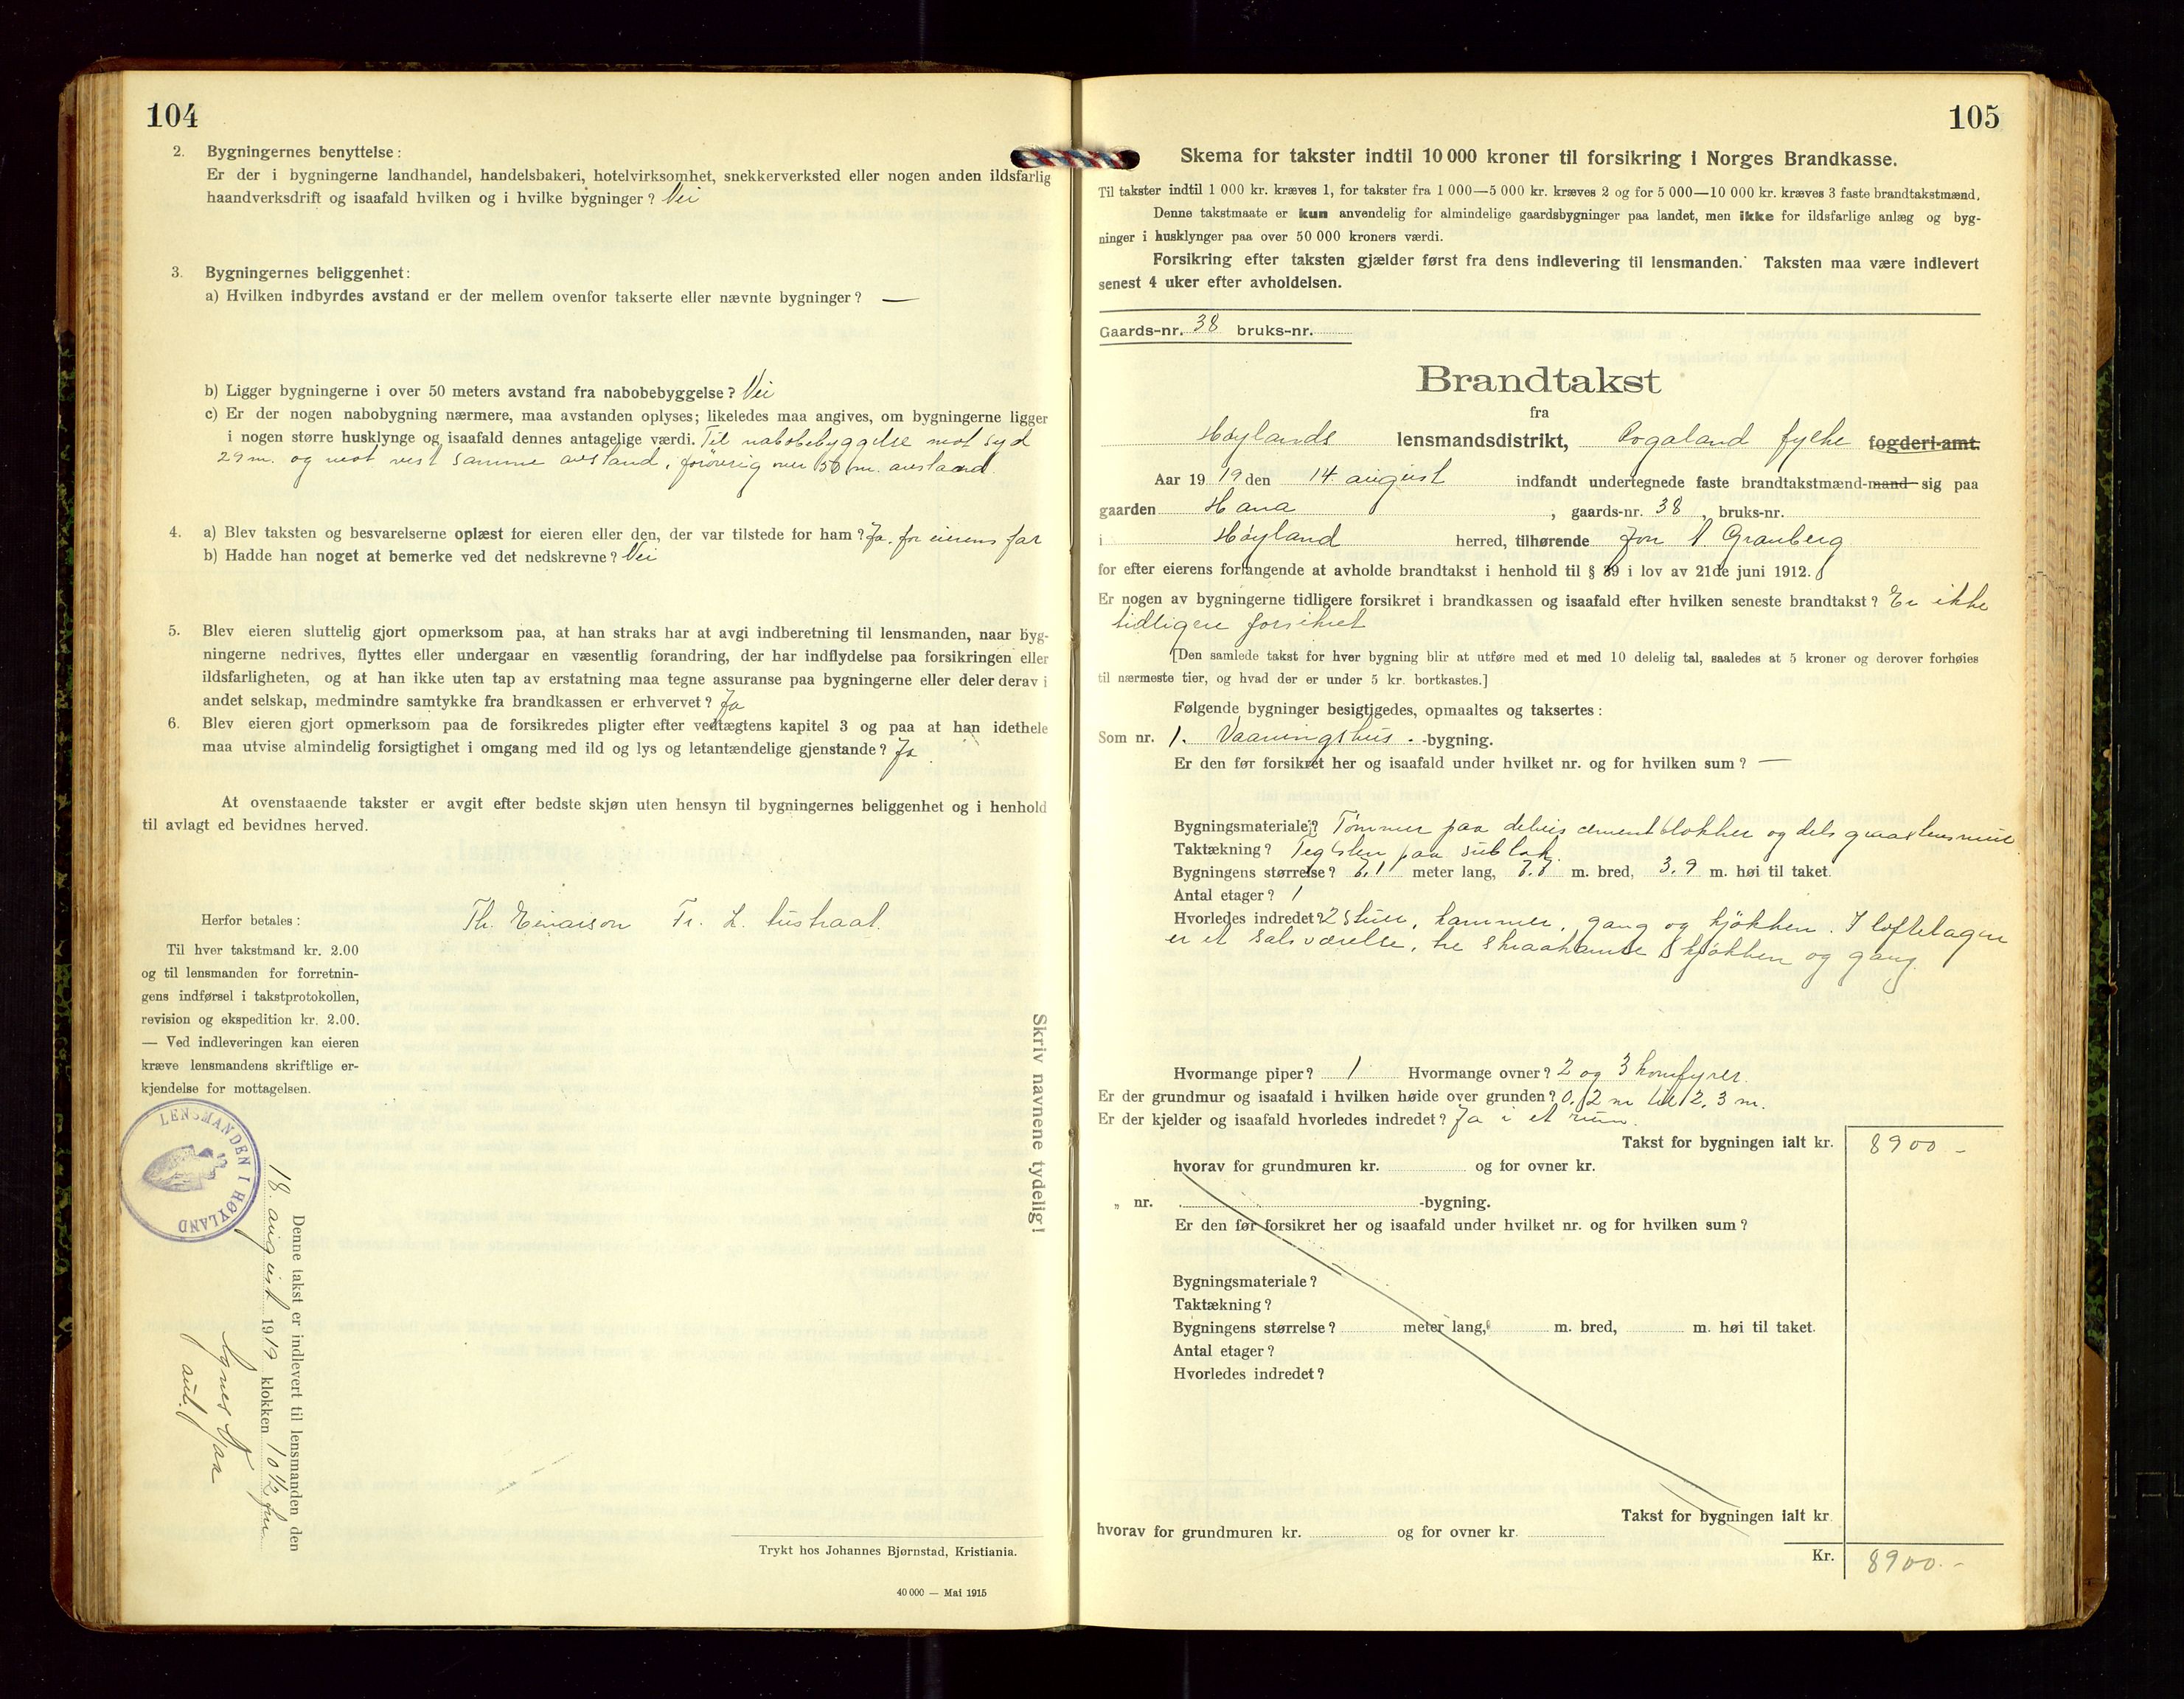 104
2. Bygningernes benyttelse:
Er der i bygningerne landhandel, handelsbakeri, hotelvirksomhet, snekkerverksted eller nogen anden ildsfarlig
haandverksdrift og isaafald hvilken og i hvilke bygninger? Nei
3. Bygningernes beliggenhet:
a) Hvilken indbyrdes avstand er der mellem ovenfor takserte eller nævnte bygninger? —
b) Ligger bygningerne i over 50 meters avstand fra nabobebyggelse? Nei
c) Er der nogen nabobygning nærmere, maa avstanden oplyses; likeledes maa angives, om bygningerne ligger
i nogen større husklynge og isaafald dennes antagelige værdi. Til nabobebyggelse mot syd
29 m. og mot vest samme avstand, forøvrig over 50 m. avstand.
4. a) Blev taksten og besvarelserne oplæst for eieren eller den, der var tilstede for ham? Ja, for eierens far
b) Hadde han noget at bemerke ved det nedskrevne? Nei
5. Blev eieren sluttelig gjort opmerksom paa, at han straks har at avgi indberetning til lensmanden, naar byg-
ningerne nedrives, flyttes eller undergaar en væsentlig forandring, der har indflydelse paa forsikringen eller
ildsfarligheten, og at han ikke uten tap av erstatning maa tegne assuranse paa bygningerne eller deler derav i
andet selskap, medmindre samtykke fra brandkassen er erhvervet? Ja
6. Blev eieren gjort opmerksom paa de forsikredes pligter efter vedtægtens kapitel 3 og paa at han idethele
maa utvise almindelig forsigtighet i omgang med ild og lys og letantændelige gjenstande? Ja.
At ovenstaaende takster er avgit efter bedste skjøn uten hensyn til bygningernes beliggenhet og i henhold
til avlagt ed bevidnes herved.
Th. Einarson Fr. L.
Herfor betales:
Til hver takstmand kr. 2.00
og til lensmanden for forretnin-
gens indførsel i takstprotokollen,
revision og ekspedition kr. 2.00.
— Ved indleveringen kan eieren
kræve lensmandens skriftlige er-
kjendelse for mottagelsen.
Skriv navnene tydelig!
LENSMANDEN I HØYLAND
Denne takst er indlevert til lensmanden den
18. august 1919 klokken 10 ½ fm.
Agnes
aut.
Trykt hos Johannes Bjørnstad, Kristiania.
40 000 — Mai 1915
105
Skema for takster indtil 10 000 kroner til forsikring i Norges Brandkasse.
Til takster indtil 1 000 kr. kræves 1, for takster fra 1 000—5 000 kr. kræves 2 og for 5 000—10 000 kr. kræves 3 faste brandtakstmænd.
Denne takstmaate er kun anvendelig for almindelige gaardsbygninger paa landet, men ikke for ildsfarlige anlæg og byg-
ninger i husklynger paa over 50 000 kroners værdi.
Forsikring efter taksten gjælder først fra dens indlevering til lensmanden. Taksten maa være indlevert
senest 4 uker efter avholdelsen.
Gaards-nr. 38 bruks-nr.
Brandtakst
fra
Høylands lensmandsdistrikt, Rogaland fylke fogderi-amt.
Aar 1919 den 14. august indfandt undertegnede faste brandtakstmænd-mand sig paa
gaarden Hana, gaards-nr. 38, bruks-nr.
i Høyland herred, tilhørende Jon A. Granberg
for efter eierens forlangende at avholde brandtakst i henhold til § 39 i lov av 21de juni 1912.
Er nogen av bygningerne tidligere forsikret i brandkassen og isaafald efter hvilken seneste brandtakst? Er ikke
tidligere forsikret
[Den samlede takst for hver bygning blir at utføre med et med 10 delelig tal, saaledes at 5 kroner og derover forhøies
til nærmeste tier, og hvad der er under 5 kr. bortkastes.]
Følgende bygninger besigtigedes, opmaaltes og taksertes:
Som nr. 1. Vaaningshus.-bygning.
Er den før forsikret her og isaafald under hvilket nr. og for hvilken sum? —
Bygningsmateriale? Tømmer paa delvis cementblokker og dels graastensmur
Taktækning? Teglsten paa
Bygningens størrelse? 7,1 meter lang, 7.7 m. bred, 3.9 m. høi til taket.
Antal etager? 1
Hvorledes indredet? 2 stuer, kammer, gang og kjøkken. I loftetagen
er et salsværelse, tre skraakamre kjøkken og gang.
Hvormange piper? 1 Hvormange ovner? 2 og 3 komfyrer.
Er der grundmur og isaafald i hvilken høide over grunden? 0,2 m til 2,3 m.
Er der kjelder og isaafald hvorledes indredet? Ja i et rum.
Takst for bygningen ialt kr. 8900 -
hvorav for grundmuren kr. og for ovner kr.
„ nr. -bygning.
Er den før forsikret her og isaafald under hvilket nr. og for hvilken sum?
Bygningsmateriale?
Taktækning?
Bygningens størrelse? meter lang, m. bred, m. høi til taket.
Antal etager?
Hvorledes indredet?
Takst for bygningen ialt kr.
hvorav for grundmuren kr. og for ovner kr.
Kr. 8900.-